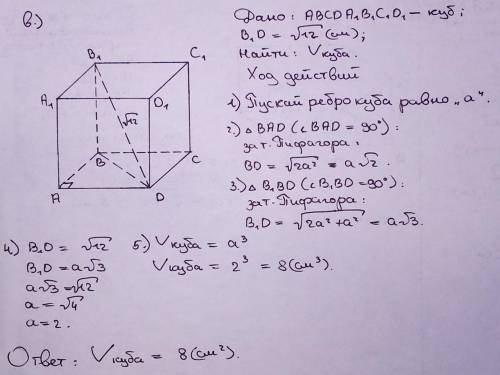 в.)
Дано: ABCDA₁B₁C₁D₁ – куб;
B₁D = √12 (см);
Найти: Vкуба.
Ход действий
1.) Пускай ребро куба равно „a“.
2.) △ BAD (∠BAD = 90°):
за т. Пифагора:
BD = √2a² = a√2.
3.) △ B₁BD (∠B₁BD = 90°):
за т. Пифагора:
B₁D = √2a² + a² = a√3.
B₁
C₁
A₁
D₁
√12
B
C
A
D
4) B₁D = √12
B₁D = a√3
a√3 = √12
a = √4
a = 2.
5.) Vкуба = a³
Vкуба = 2³ = 8 (см³).
Ответ: Vкуба = 8 (см²).